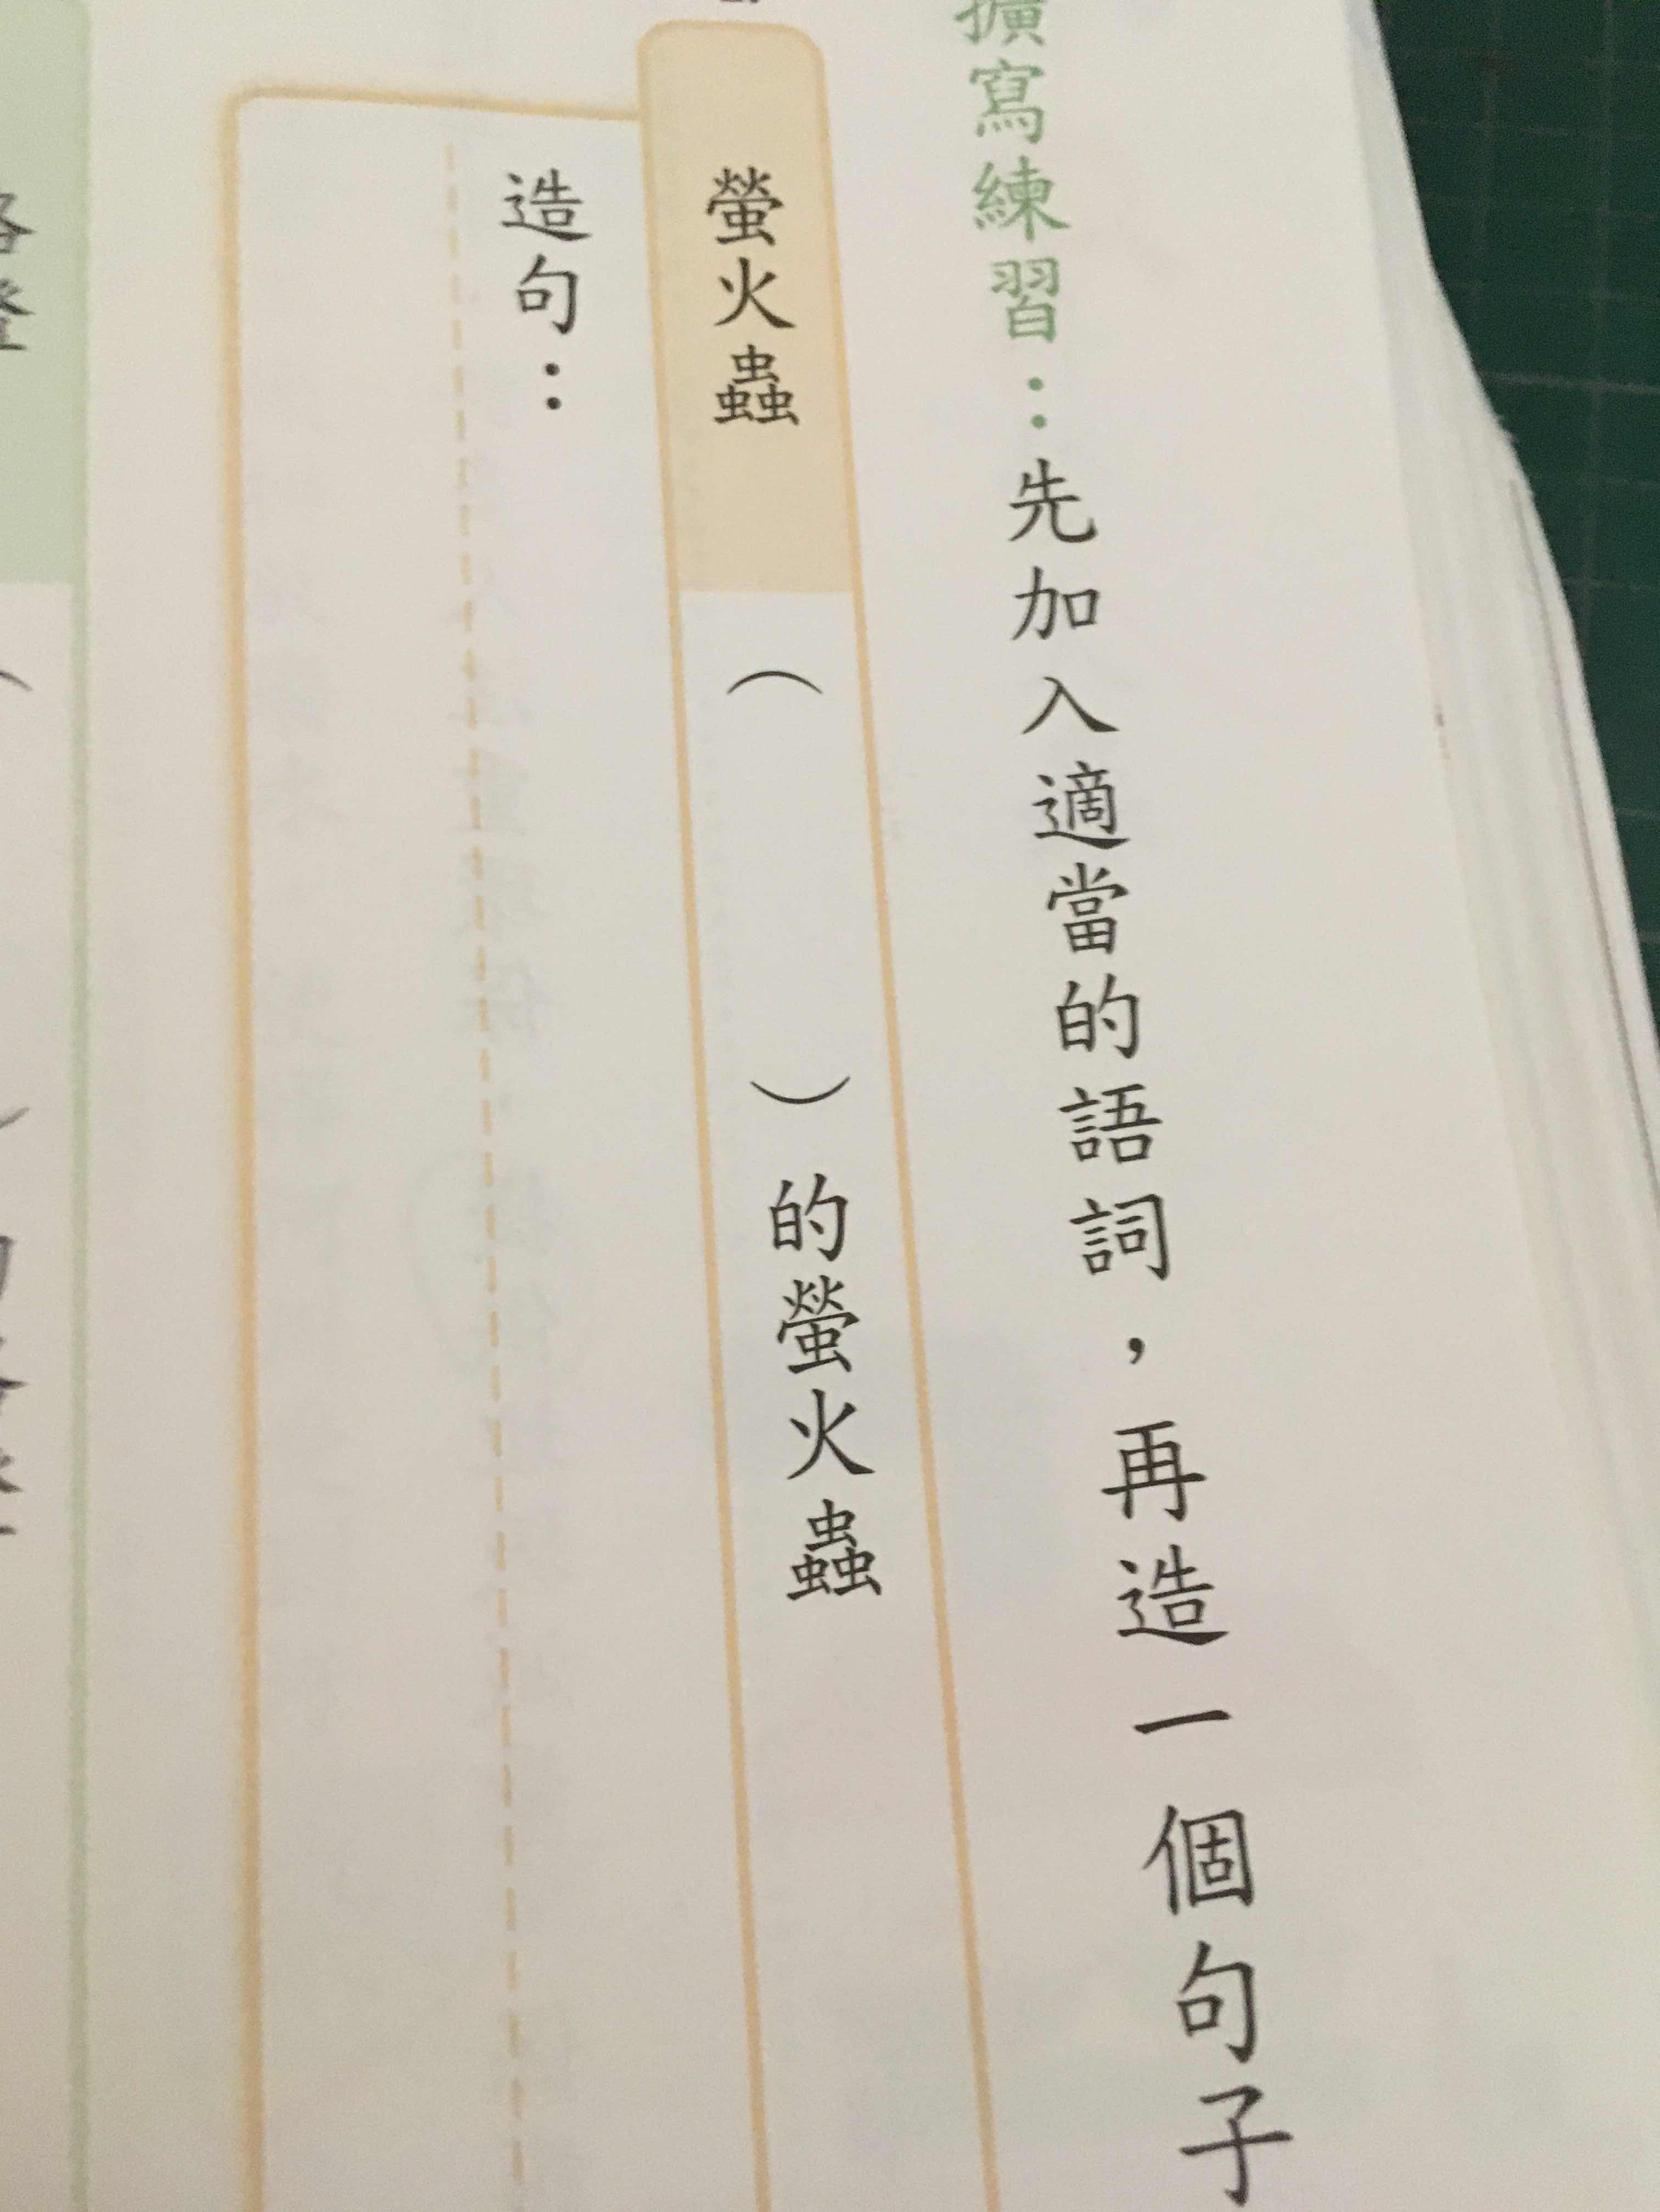 擴寫練習：先加入適當的語詞，再造一個句子
螢火蟲（　　　）的螢火蟲
造句：